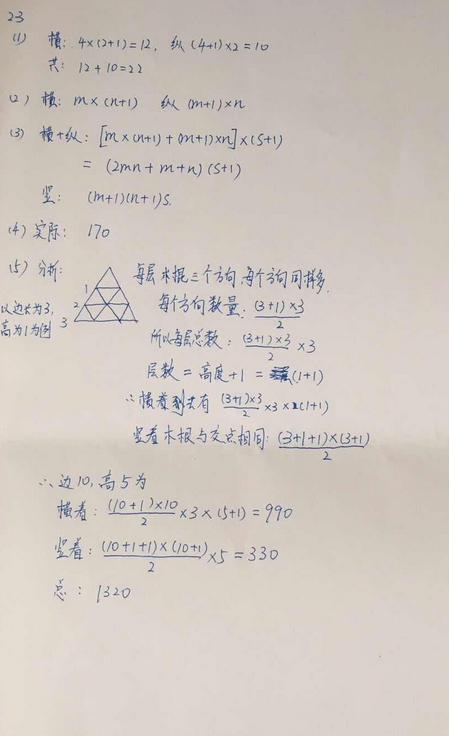 23
(1) 横: 4×(2+1)=12, 纵(4+1)×2=10
共: 12+10=22
(2) 横: m×(n+1) 纵(m+1)×n
(3) 横+纵: [m×(n+1)+(m+1)×n]×(S+1)
= (2mn+m+n)(S+1)
竖: (m+1)(n+1)S.
(4) 实际: 170
(5) 分析:
以边长为3,
高为1为例
1
2
3
每层木棍三个方向,每个方向同样多.
每个方向数量: (3+1)×3/2
所以每层总数: (3+1)×3/2 ×3
层数 = 高度+1 = (1+1)
∴横着共有 (3+1)×3/2 ×3×(1+1)
竖着木根与交点相同: (3+1+1)×(3+1)/2
∴边10,高5为
横着: (10+1)×10/2 ×3×(5+1)=990
竖着: (10+1+1)×(10+1)/2 ×5=330
总: 1320